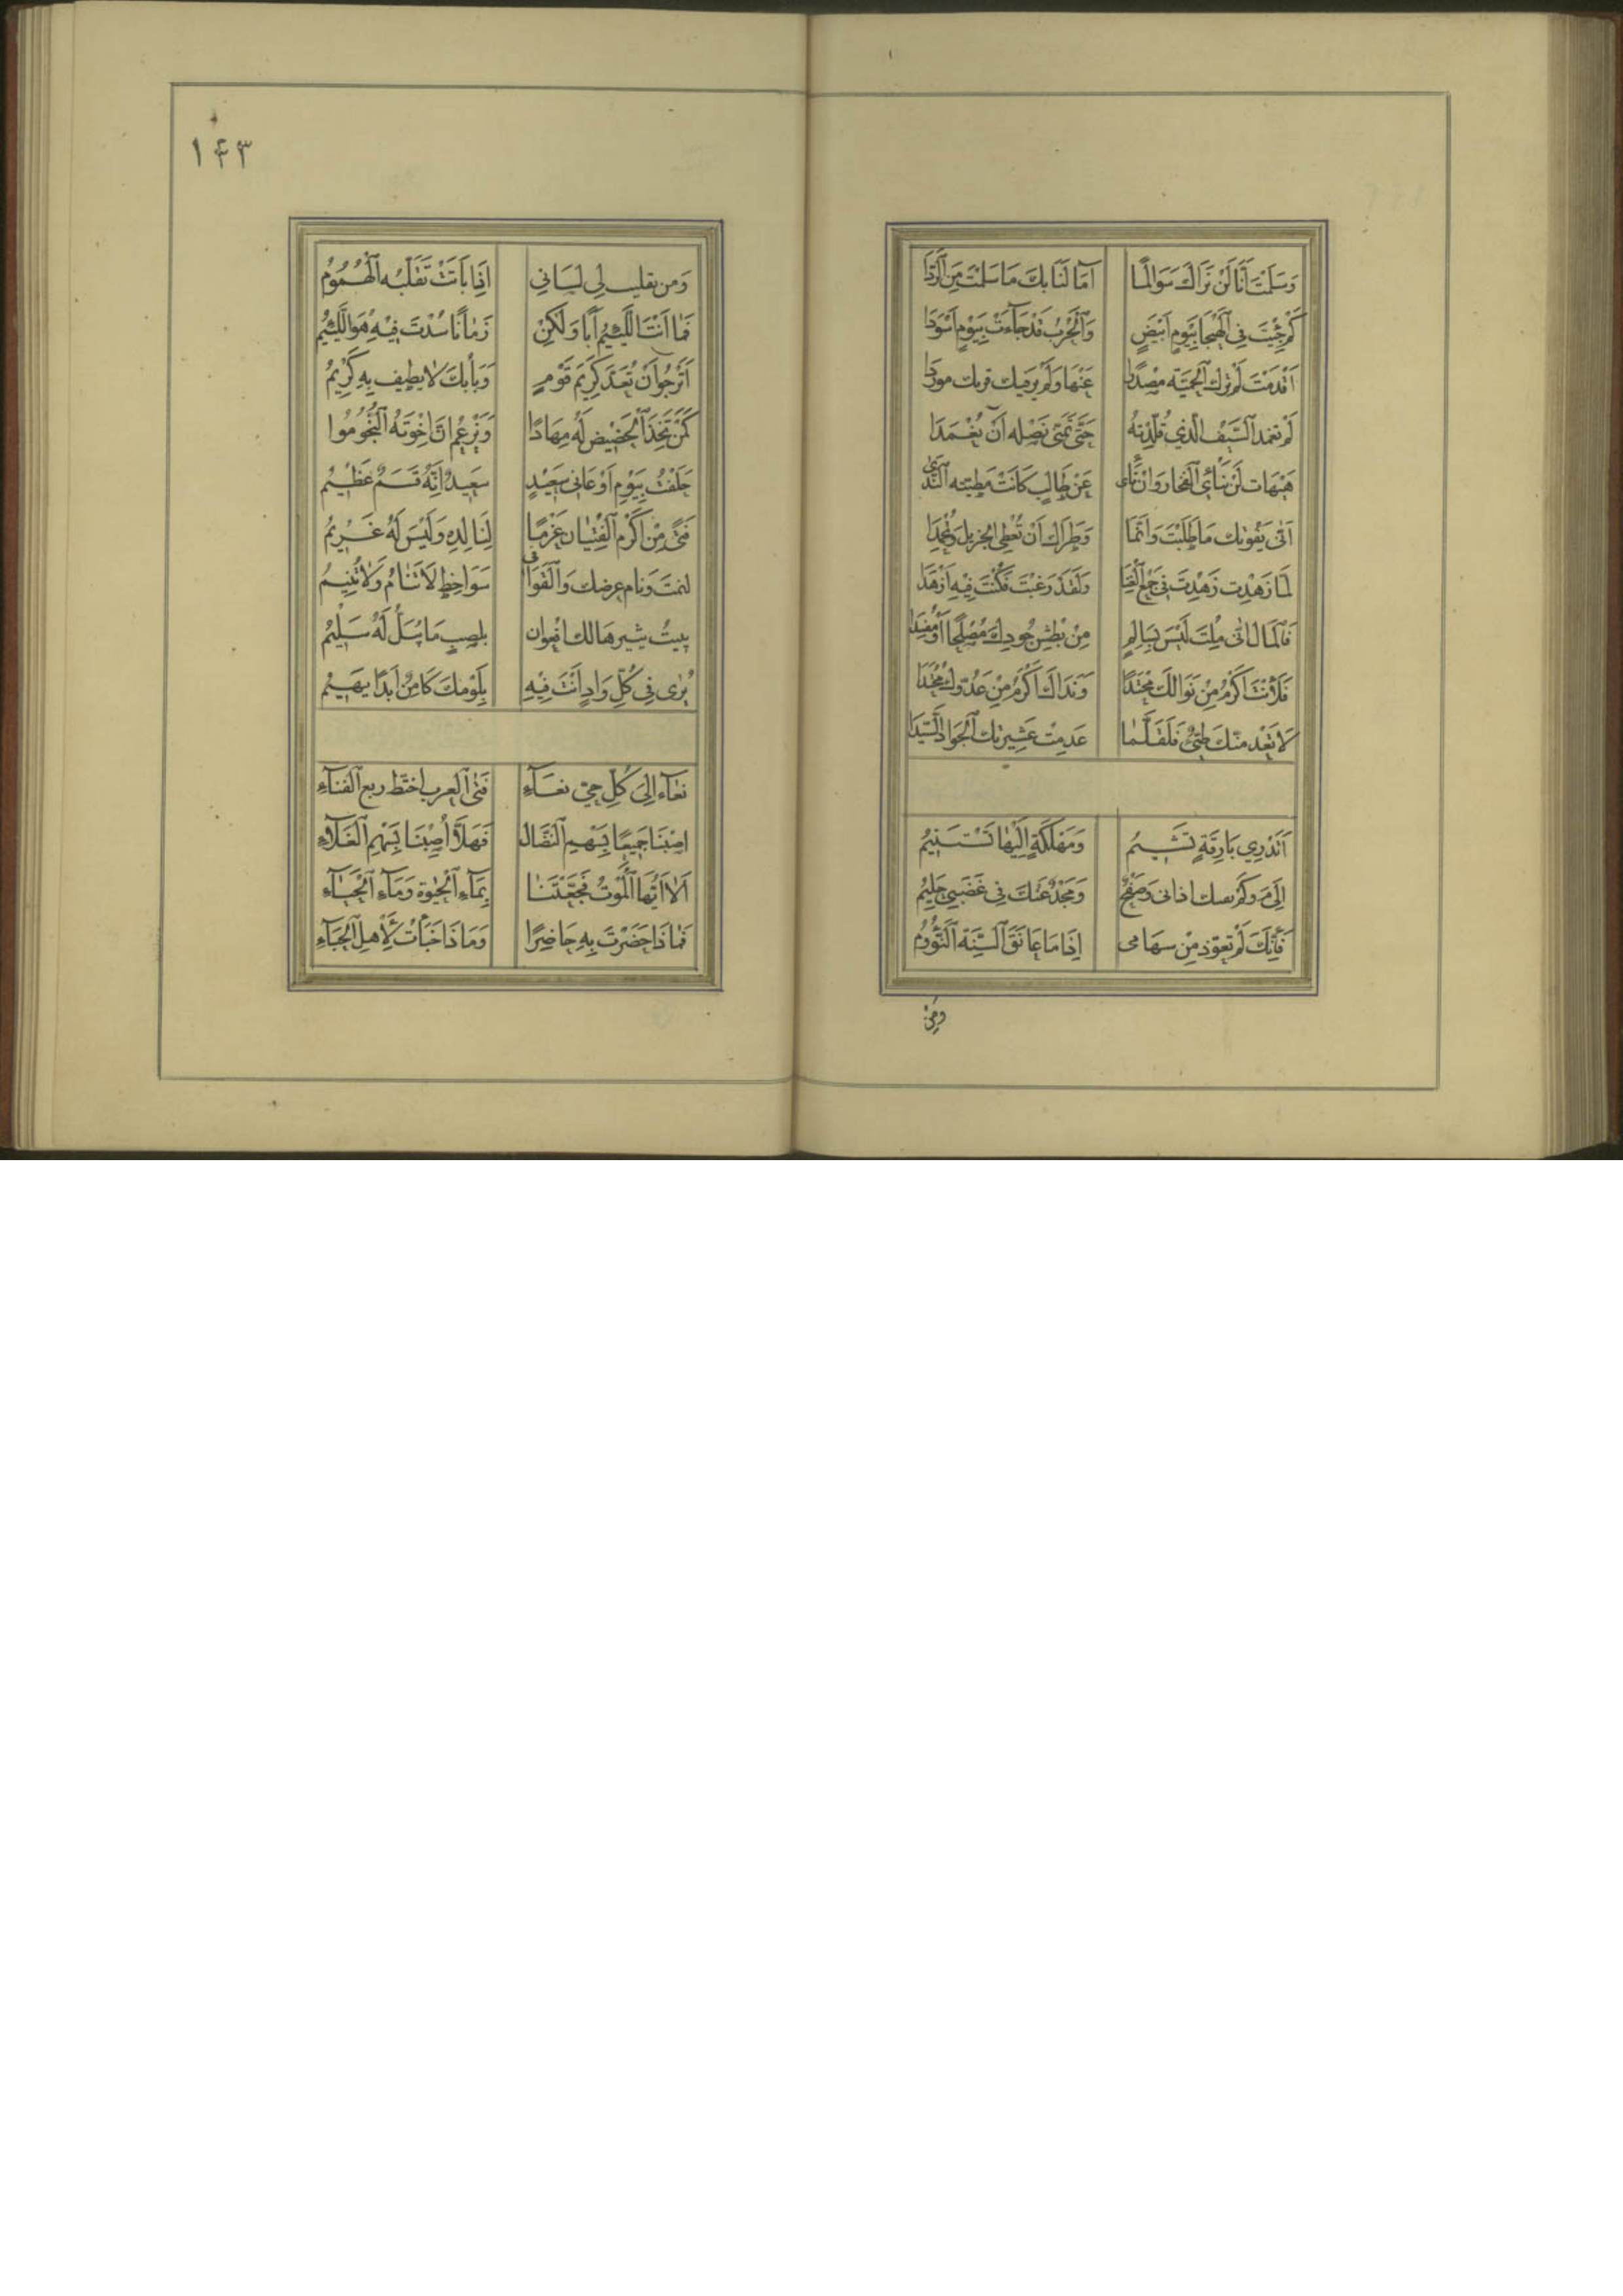 وَسَلِمْتَ أَنَّا لَنْ نَرَاكَ سَوَالِمًا آمَالُنَا بِكَ مَا سَلِمْتَ مِنَ ٱلرَّدَا
كَمْ جِئْتَ فِي ٱلْهَيْجَا بِيَوْمٍ أَبْيَضٍ وَٱلْحَرْبُ قَدْ جَاءَتْ بِيَوْمٍ أَسْوَدَا
أَقْدَمْتَ لَمْ تُرِكَ ٱلْحَمِيَّة مَصْدَرًا عَنْهَا وَلَمْ يَرَ فِيكَ قِرنك مَوْرِدَا
لَمْ تغمد ٱلسَّيْفَ ٱلَّذِي قُلِّدْتَهُ حَتَّى تَمَنَّى نَصْله أَنْ يُغْمَدَا
هَيْهَات لَنْ يَنْأَى ٱلفَخَار وَإِنْ نَأَى عَنْ طَالِبٍ كَانَتْ مَطِيَّته ٱلنَّدَى
أَنَّى يَفُوتك مَا طَلَبْتَ وَإِنَّمَا وَطَرَاكَ أَنْ تُعْطِي ٱلجَزِيلَ وَتُحْمَدَا
لَمَّا زَهِدْتَ زَهِدْتَ فِي جَمْعِ ٱلغِنَا وَلَقَدْ رَغِبْتَ فَكُنْتَ فِيهِ أَزْهَدَا
فَٱلْمَالُ أَنَّى مِلْتَ لَيْسَ بِسَالِمٍ مِنْ بَطْشِ جُودِكَ مُصْلِحًا أَوْ مُفْسِدَا
فَلَأَنْتَ أَكْرَمُ مِنْ نَوَالِكَ مَحْتِدًا وَنَدَاكَ أَكْرَمُ مِنْ عَدُوّكَ مَحْتِدَا
لَا تَعْدمَنَّكَ طَيِّئٌ فَلَقَلَّمَا عَدِمَتْ عَشِيرتك ٱلْجَوَادَ ٱلسَّيِّدَا
أَتَدْرِي بَارِقَةٍ تَشِيمُ وَمَهْلَكَةٍ إِلَيْهَا تَسْتَنِيمُ
إِلَى مَ وَكَمْ اذاتى وَصَفْحِي وَمَجْدٌ عَنْكَ فِي غَضَبِي حَلِيمُ
فَإِنَّكَ لَمْ تُعَوّذ مِنْ سِهَامِي إِذَا مَا عَانَقَ ٱلسِّنَة ٱلنَّؤُومُ
وَمِنْ
١٤٣
وَمن تقليب لِي لِسَانِي إِذَا بَاتَتْ تقَلّبُه ٱلْهُمُومُ
فَمَا أَنْتَ ٱللَّئِيمُ أَبًا وَلَكِنْ زَمَانًا سُدْتَ فِيهِ هُوَ ٱللَّئِيمُ
أَتَرْجُو أَنْ تُعَدَّ كَرِيم قَوْمٍ وَبَابكَ لَا يطيف بِهِ كَرِيمُ
كَمَنْ تَخِذَ ٱلْحَضِيض لَهُ مِهَادًا وَيَزْعُم أَنَّ إِخْوَتَهُ ٱلنُّجُومُوا
حَلَفْتُ بِيَوْمِ أَوْ عَانِي سَعِيدٍ سَعِيدٌ إِنَّهُ قَسَمٌ عَظِيمُ
فَتًى مِنْ أَكْرَم ٱلفِتْيَانِ غَرْمًا لِنَالِدِهِ وَلَيْسَ لَهُ غَرِيمُ
لنمتَ وَنَام عِرضك وَٱلْقَوَافِي سَوَاخِطُ لَا تَنَامُ وَلَا تُنِيمُ
يبيتُ يثيرهَا لك أُفْعُوان بلصِب مَا يُبلّ لَهُ سَلِيمُ
يُرَى فِي كُلِّ وَادٍ أَنْتَ فِيهِ بِلَوْمِكَ كَامِنٌ أَبَدًا يَهِيمُ
نَعَاءِ إِلَى كُلِّ حَيٍّ نَعَاءِ فَتَى ٱلعَرب اختطّ ربع ٱلفَنَاءِ
أُصِبْنَا جَمِيعًا بِسَهْمِ ٱلنِّضَال فَهَلَّا أُصِبْنَا بِسَهْمِ ٱلْغَلَاءِ
أَلَا أَيُّهَا ٱلْمَوْتُ فَجَّعْتَنَا بِمَاءِ ٱلْحَيٰوةِ وَمَاءِ ٱلْحَيَاءِ
فَمَاذَا حَضَرْتَ بِهِ حَاضِرًا وَمَاذَا خَبَأْتَ لِأَهْلِ ٱلْخِبَاءِ